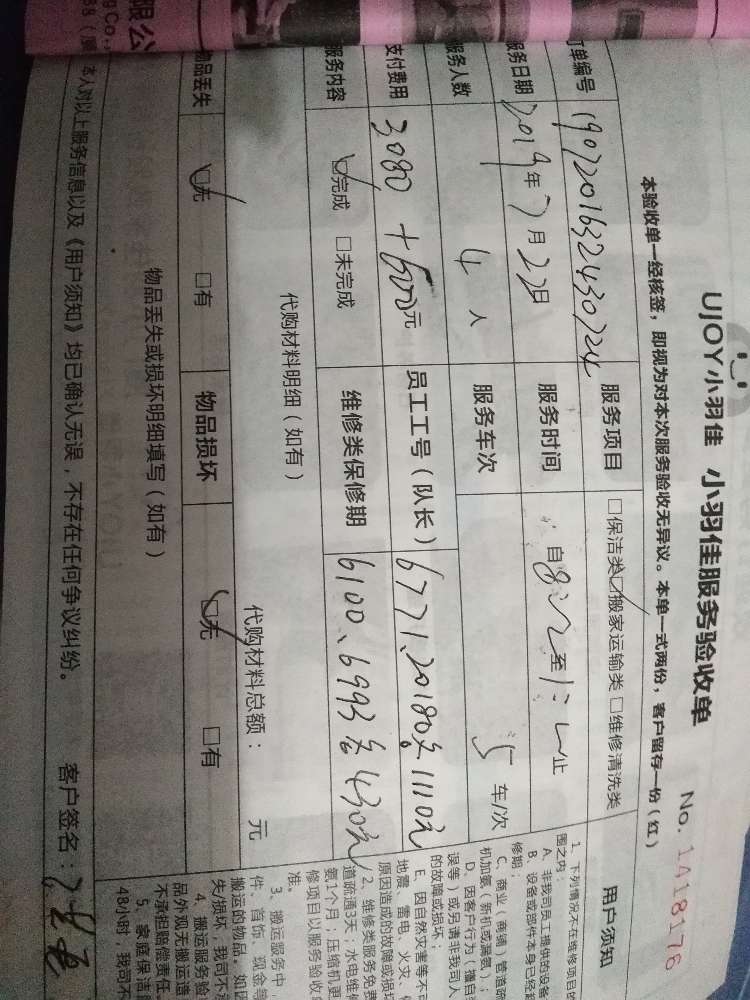 限公
UJOY小羽佳 小羽佳服务验收单
No. 1A18176
本验收单一经核签，即视为对本次服务验收无异议。本单一式两份，客户留存一份（红）
订单编号 1907201632430724 服务项目 □保洁类 ☑搬家运输类 □维修清洗类
服务日期 2019年7月22日 服务时间 自 至 止
服务人数 4人 服务车次 5车/次
支付费用 3080+600元 员工工号（队长） 6771、20180各1110元
服务内容 ☑完成 □未完成 维修类保修期 6100、6993各430元
代购材料明细（如有） 代购材料总额： 元
物品丢失 ☑无 □有 物品损坏 ☑无 □有
物品丢失或损坏明细填写（如有）
本人对以上服务信息以及《用户须知》均已确认无误，不存在任何争议纠纷。 客户签名：
用户须知
1、下列情况不在维修项目的
围之内：
A、非我司员工提供的设备
B、设备或部件本身已经超
修期；
C、商业（商铺）管道疏
机加氟，新机或漏氟）；
D、因客户行为（擅自
误等）或另请非我司人
的故障或损坏；
E、因自然灾害等不可
地震、雷电、火灾、
原因造成的故障或损坏
2、维修类服务免费
道疏通3天；水电维修
氨1个月；压缩机更
修项目以服务验收
准。
3、搬运服务中，
件、首饰、现金等
搬运的物品，如因
失/损坏，我司不承
4、搬运服务验
品外观无搬运造
不承担赔偿责任
5、家庭保洁服
48小时，我司不